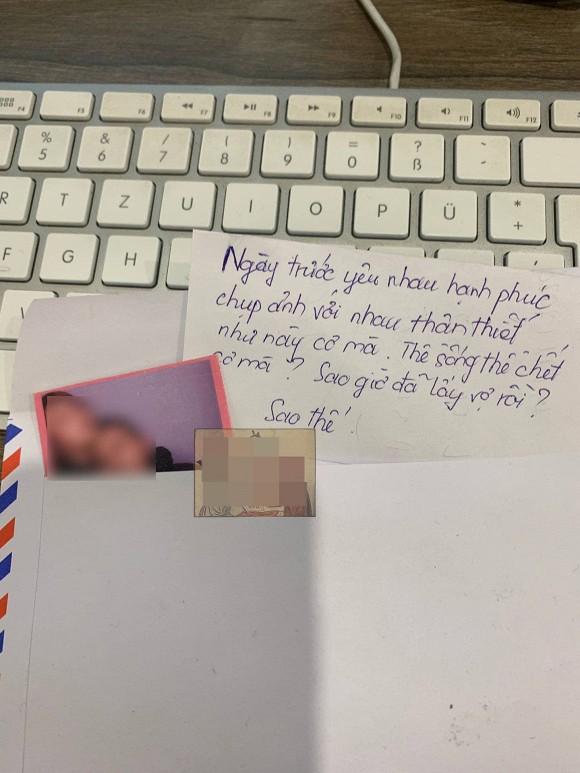 F4 F5 F6 F7 F8 F9 F10 F11 F12
% 5 & 6 / 7 ( 8 ) 9 = 0 ? ß ` -
R T Z U I O P Ü * +
F G H
Ngày trước yêu nhau hạnh phúc
chụp ảnh với nhau thân thiết
như này cơ mà. Thề sống thề chết
cơ mà? Sao giờ đã lấy vợ rồi?
Sao thế!